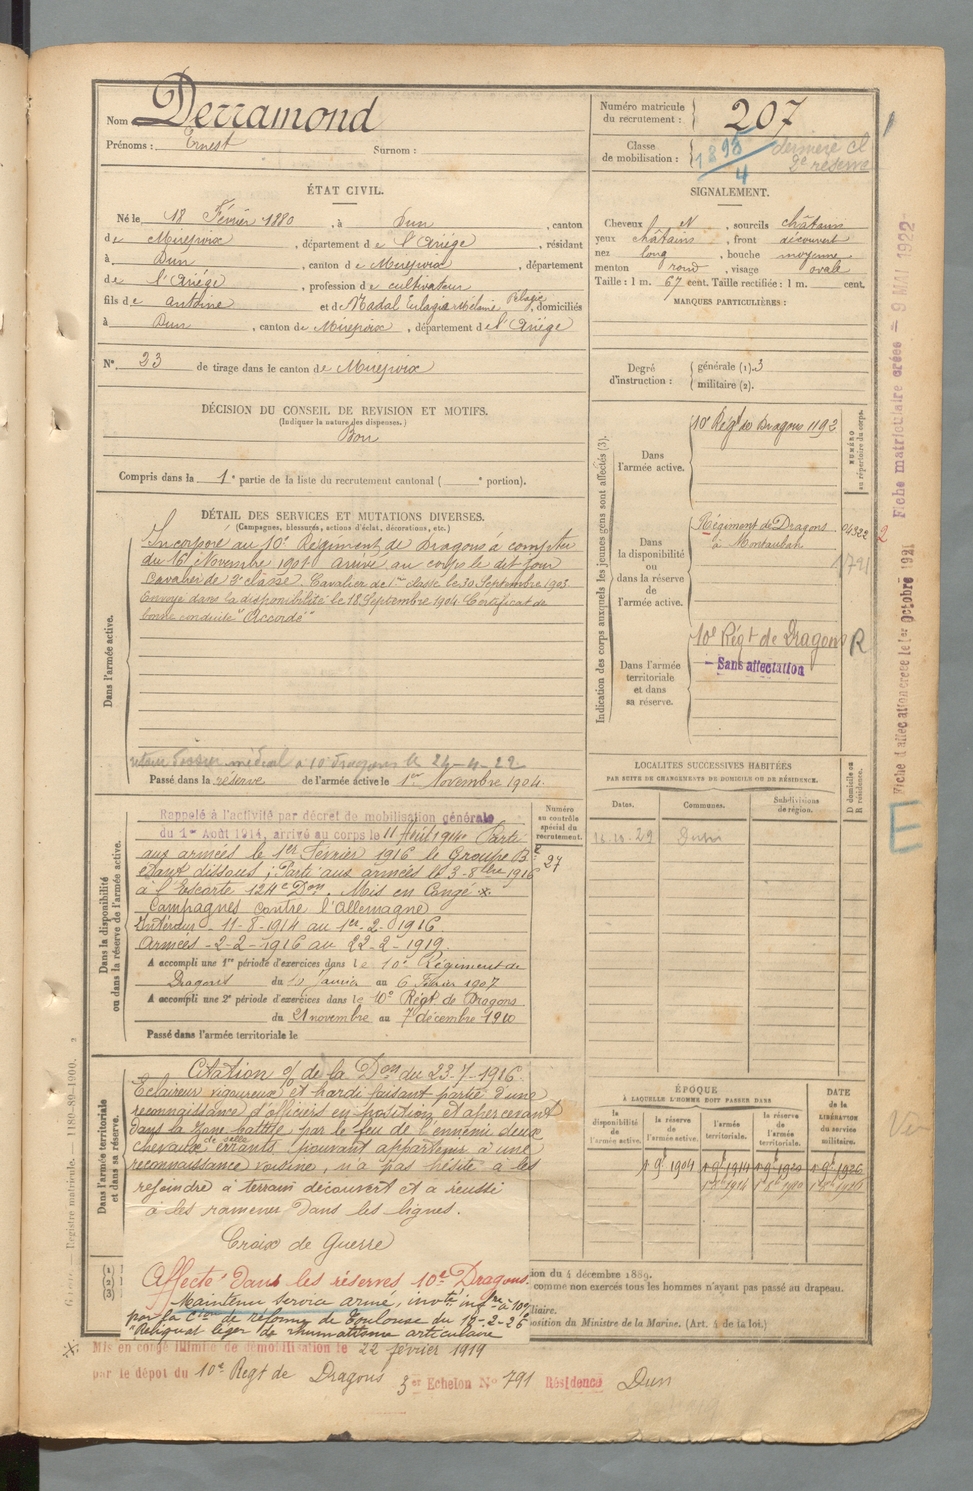 Nom Derramond
Prénoms : Ernest Surnom :
Numéro matricule du recrutement : 207
Classe de mobilisation : 1898/4 dernière cl 2e réserve
ÉTAT CIVIL.
Né le 18 Février 1880, à Dun, canton
de Mirepoix, département de l'Ariége, résidant
à Dun, canton de Mirepoix, département
de l'Ariége, profession de cultivateur
fils de Antoine et de Madal Eulagie Mélanie Pélagie, domiciliés
à Dun, canton de Mirepoix, département de l'Ariége
N° 23 de tirage dans le canton de Mirepoix
SIGNALEMENT.
Cheveux N, sourcils châtains
yeux châtains, front découvert
nez long, bouche moyenne
menton rond, visage ovale
Taille : 1 m. 67 cent. Taille rectifiée : 1 m. cent.
MARQUES PARTICULIÈRES :
Degré d'instruction : générale (1). 3
militaire (2).
DÉCISION DU CONSEIL DE REVISION ET MOTIFS.
(Indiquer la nature des dispenses.)
Bon
Compris dans la 1e partie de la liste du recrutement cantonal ( e portion).
DÉTAIL DES SERVICES ET MUTATIONS DIVERSES.
(Campagnes, blessures, actions d'éclat, décorations, etc.)
Dans l'armée active.
Incorporé au 10e Régiment de Dragons à compter
du 16 Novembre 1901 arrivé au corps le dit jour
Cavalier de 2e classe. Cavalier de 1re classe le 30 Septembre 1903
Envoyé dans la disponibilité le 18 Septembre 1904 Certificat de
bonne conduite "Accordé"
retour dossier médical à 10 dragons le 24-4-22
Passé dans la réserve de l'armée active le 1er Novembre 1904.
Indication des corps auxquels les jeunes gens sont affectés (3).
NUMÉRO au répertoire du corps.
Dans l'armée active.
10e Régt de Dragons 1192
Dans la disponibilité ou dans la réserve de l'armée active.
Régiment de Dragons 04322
à Montauban
Dans l'armée territoriale et dans sa réserve.
10e Régt de Dragons R
Sans affectation
Fiche matriculaire créée = 9 MAI 1922
Fiche d'affectation créée le 1er octobre 1921
2
E
LOCALITÉS SUCCESSIVES HABITÉES
PAR SUITE DE CHANGEMENTS DE DOMICILE OU DE RÉSIDENCE.
Dates. Communes. Subdivisions de région. D domicile ou R résidence.
Dans la disponibilité ou dans la réserve de l'armée active.
Numéro au contrôle spécial du recrutement.
27
Rappelé à l'activité par décret de mobilisation générale
du 1er Août 1914, arrivé au corps le 11 Août 1914 Parti
aux armées le 1er Février 1916 le Groupe B.
étant dissous ; Parti aux armées le 3-8bre 1916
à l'Escorte 124e Don. Mis en Congé x
Campagnes contre l'Allemagne
Intérieur - 11-8-1914 au 1er-2-1916.
Armées - 2-2-1916 au 22-2-1919.
A accompli une 1re période d'exercices dans le 10e Régiment de
Dragons du Janvier au 6 Février 1907
A accompli une 2e période d'exercices dans le 10e Régt de Dragons
du 21 novembre au 7 décembre 1910
Passé dans l'armée territoriale le
Dans l'armée territoriale et dans sa réserve.
Citation o/ de la Don du 23-7-1916
Eclaireur vigoureux et hardi faisant partie d'une
reconnaissance d'officiers en position et apercevant
dans la zone battue par le feu de l'ennemi deux
chevaux de selle errants pouvant appartenir à une
reconnaissance voisine, n'a pas hésité à les
rejoindre à terrain découvert et a réussi
à les ramener dans les lignes.
Croix de Guerre
Affecté dans les réserves 10e Dragons.
Maintenu service armé,
par la Cion de réforme de Toulouse du
"Reliquat léger de rhumatisme articulaire
ÉPOQUE
À LAQUELLE L'HOMME DOIT PASSER DANS
DATE de la LIBÉRATION du service militaire.
la disponibilité de l'armée active. la réserve de l'armée active. l'armée territoriale. la réserve de l'armée territoriale.
1 9e 1904 1 9e 1914 1 9e 1920 1 9e 1926
ion du 4 décembre 1889.
comme non exercés tous les hommes n'ayant pas passé au drapeau.
liaire.
position du Ministre de la Marine. (Art. 4 de la loi.)
x Mis en congé illimité de démobilisation le 22 février 1919
par le dépôt du 10e Régt de Dragons 3me Echelon N° 791 Résidence Dun
Registre matricule. — 1180-89-1900.